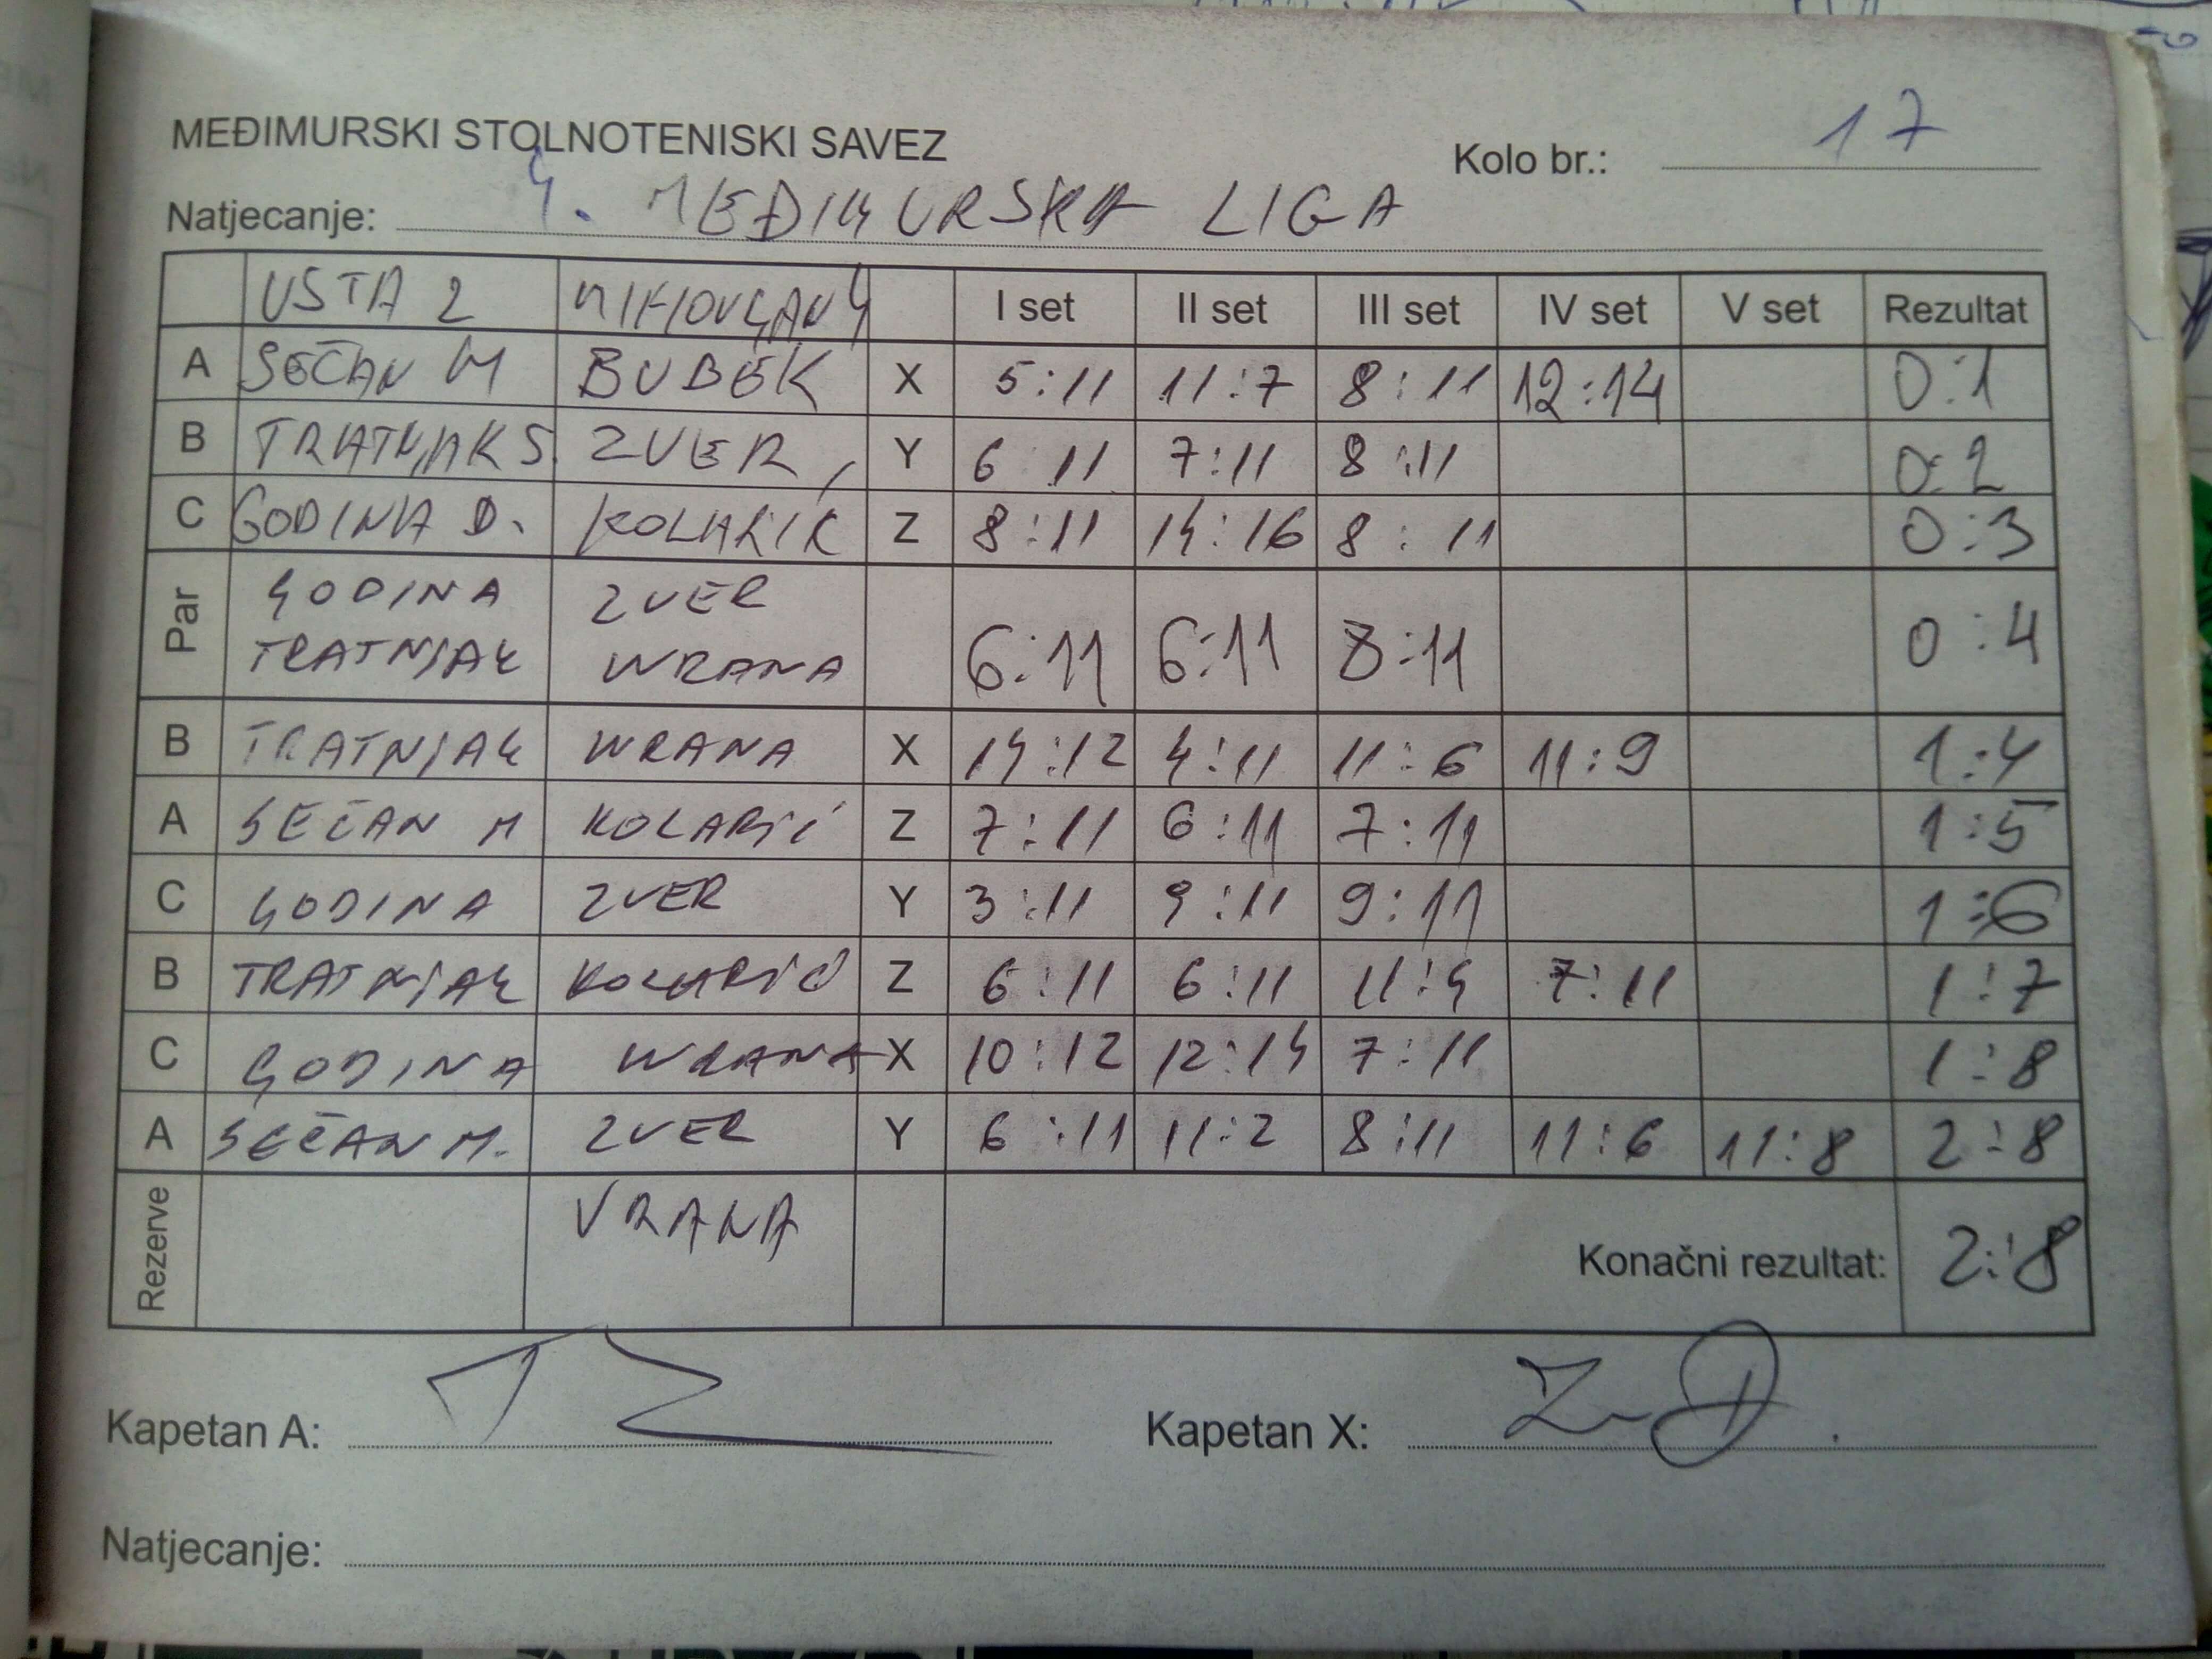 MEĐIMURSKI STOLNOTENISKI SAVEZ
Kolo br.: 17
Natjecanje: 4. MEĐIMURSKA LIGA
USTA 2 I set II set III set IV set V set Rezultat
A SEČAN M BUBEK X 5:11 11:7 8:11 12:14 0:1
B TRATNJAK S. ZVER, Y 6 11 7:11 8:11 0:2
C GODINA D. KOLARIĆ Z 8:11 14:16 8:11 0:3
Par GODINA ZVER
TRATNJAK WRANA 6:11 6:11 8:11 0:4
B TRATNJAK WRANA X 14:12 4:11 11:6 11:9 1:4
A SEČAN M KOLARIĆ Z 7:11 6:11 7:11 1:5
C GODINA ZVER Y 3:11 9:11 9:11 1:6
B TRATNJAK KOLARIĆ Z 6:11 6:11 11:4 7:11 1:7
C GODINA WRANA X 10:12 12:14 7:11 1:8
A SEČAN M. ZVER Y 6:11 11:2 8:11 11:6 11:8 2:8
Rezerve VRANA
Konačni rezultat: 2:8
Kapetan A: Kapetan X:
Natjecanje: